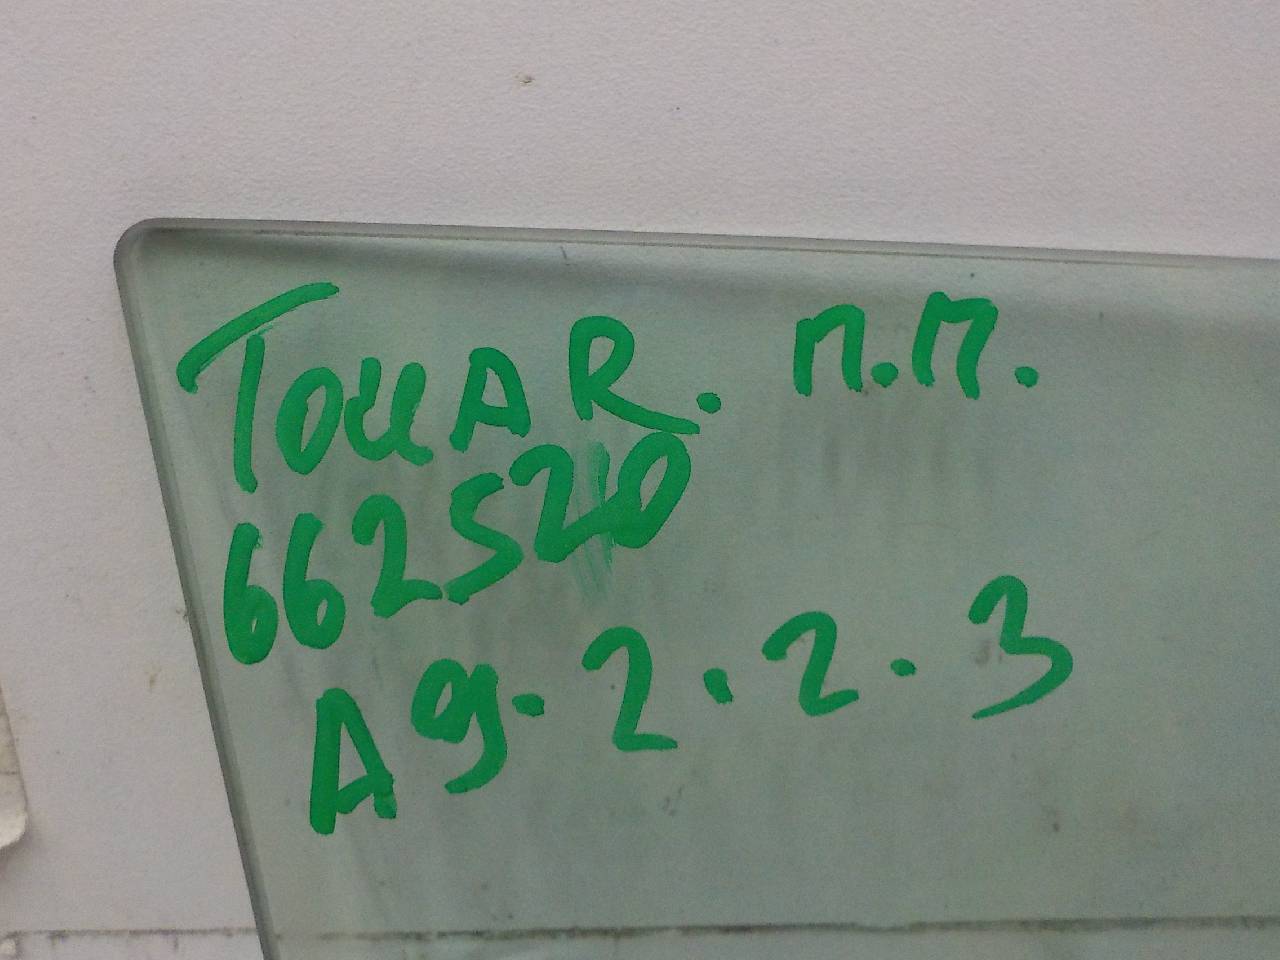 TouAR. П.П.
662520
A9.2.2.3